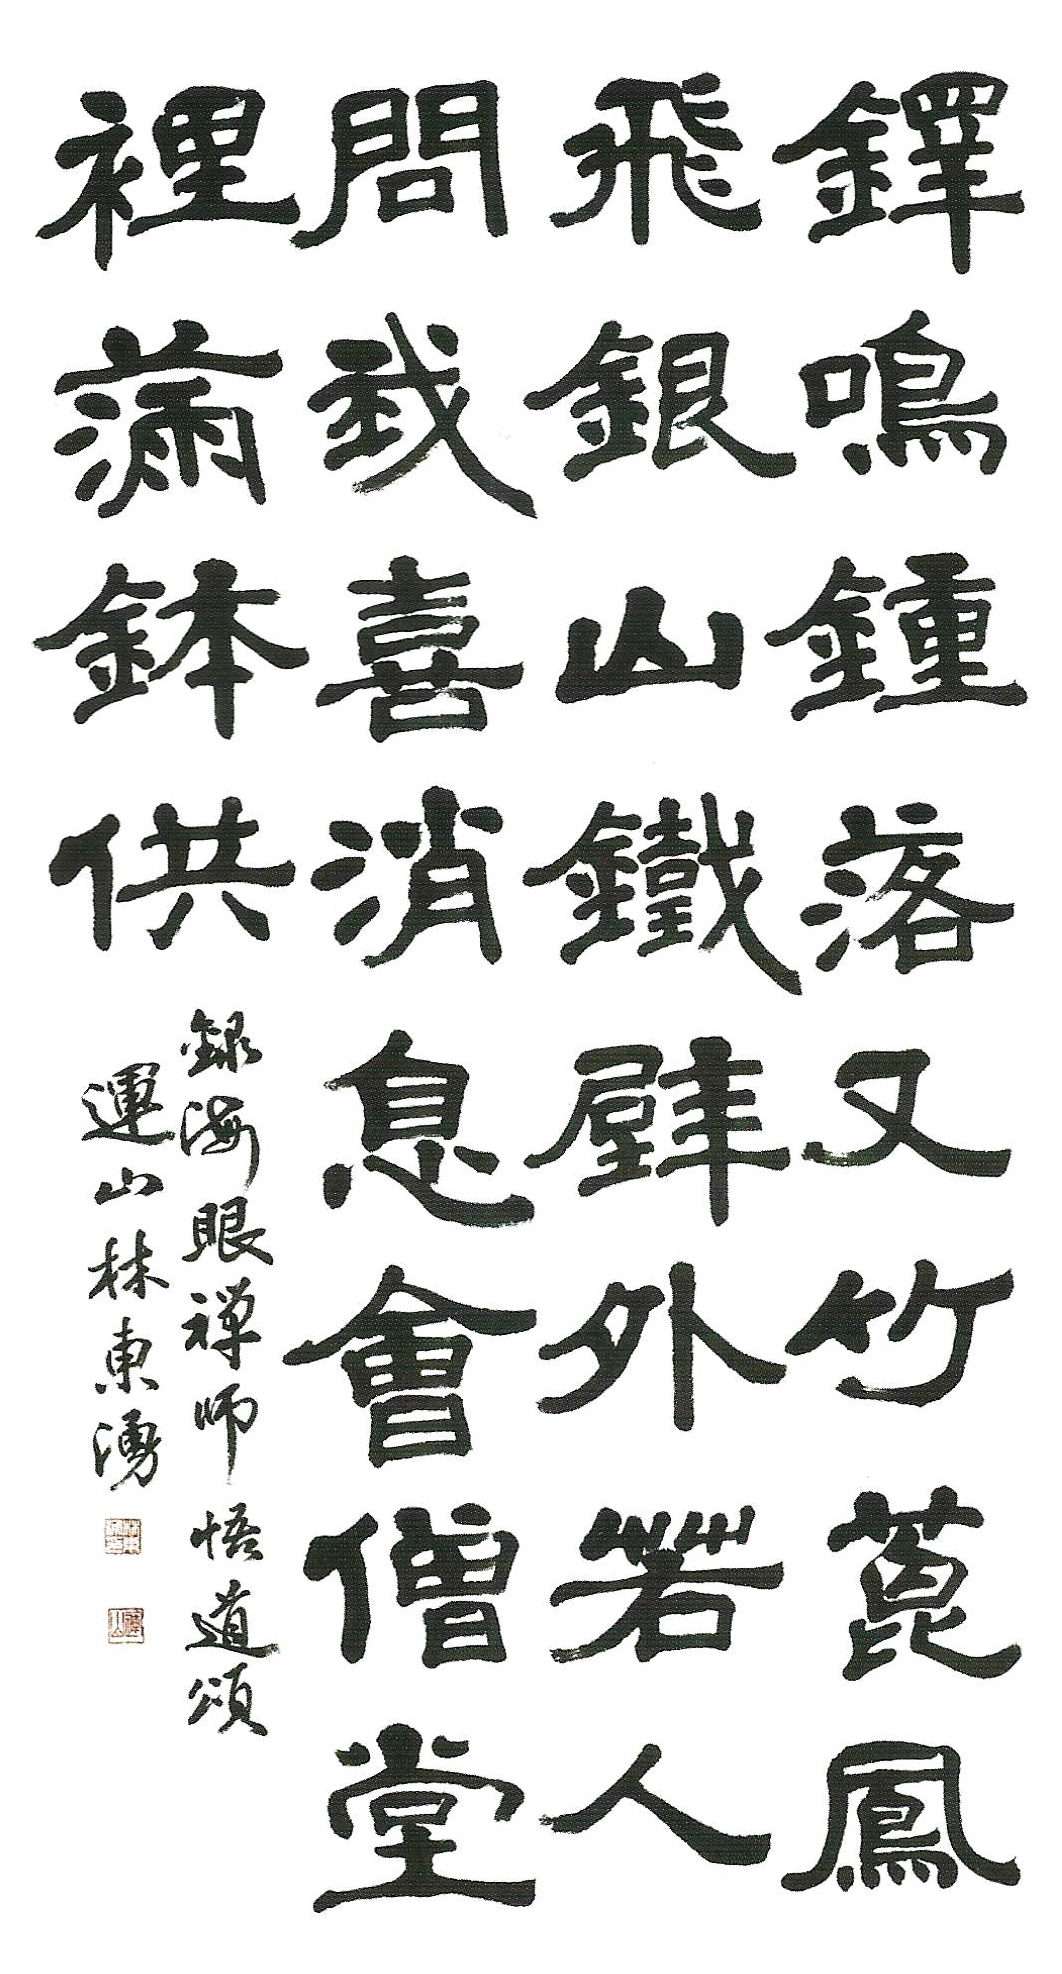 鐸鳴鍾落又竹蓖鳳
飛銀山鐵壁外若人
問我喜消息會僧堂
裡滿鉢供
錄海眼禪師悟道頌
運山林東湧